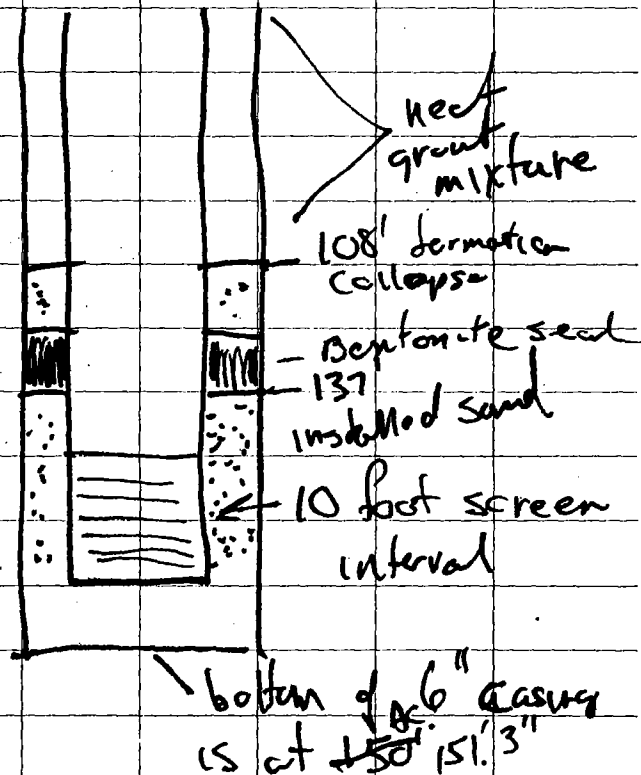 neat
grout
mixture
108' formation
collapse
Bentonite seal
137
installed sand
10 foot screen
interval
bottom of 6" casing
is at 150' AC. 151.3"